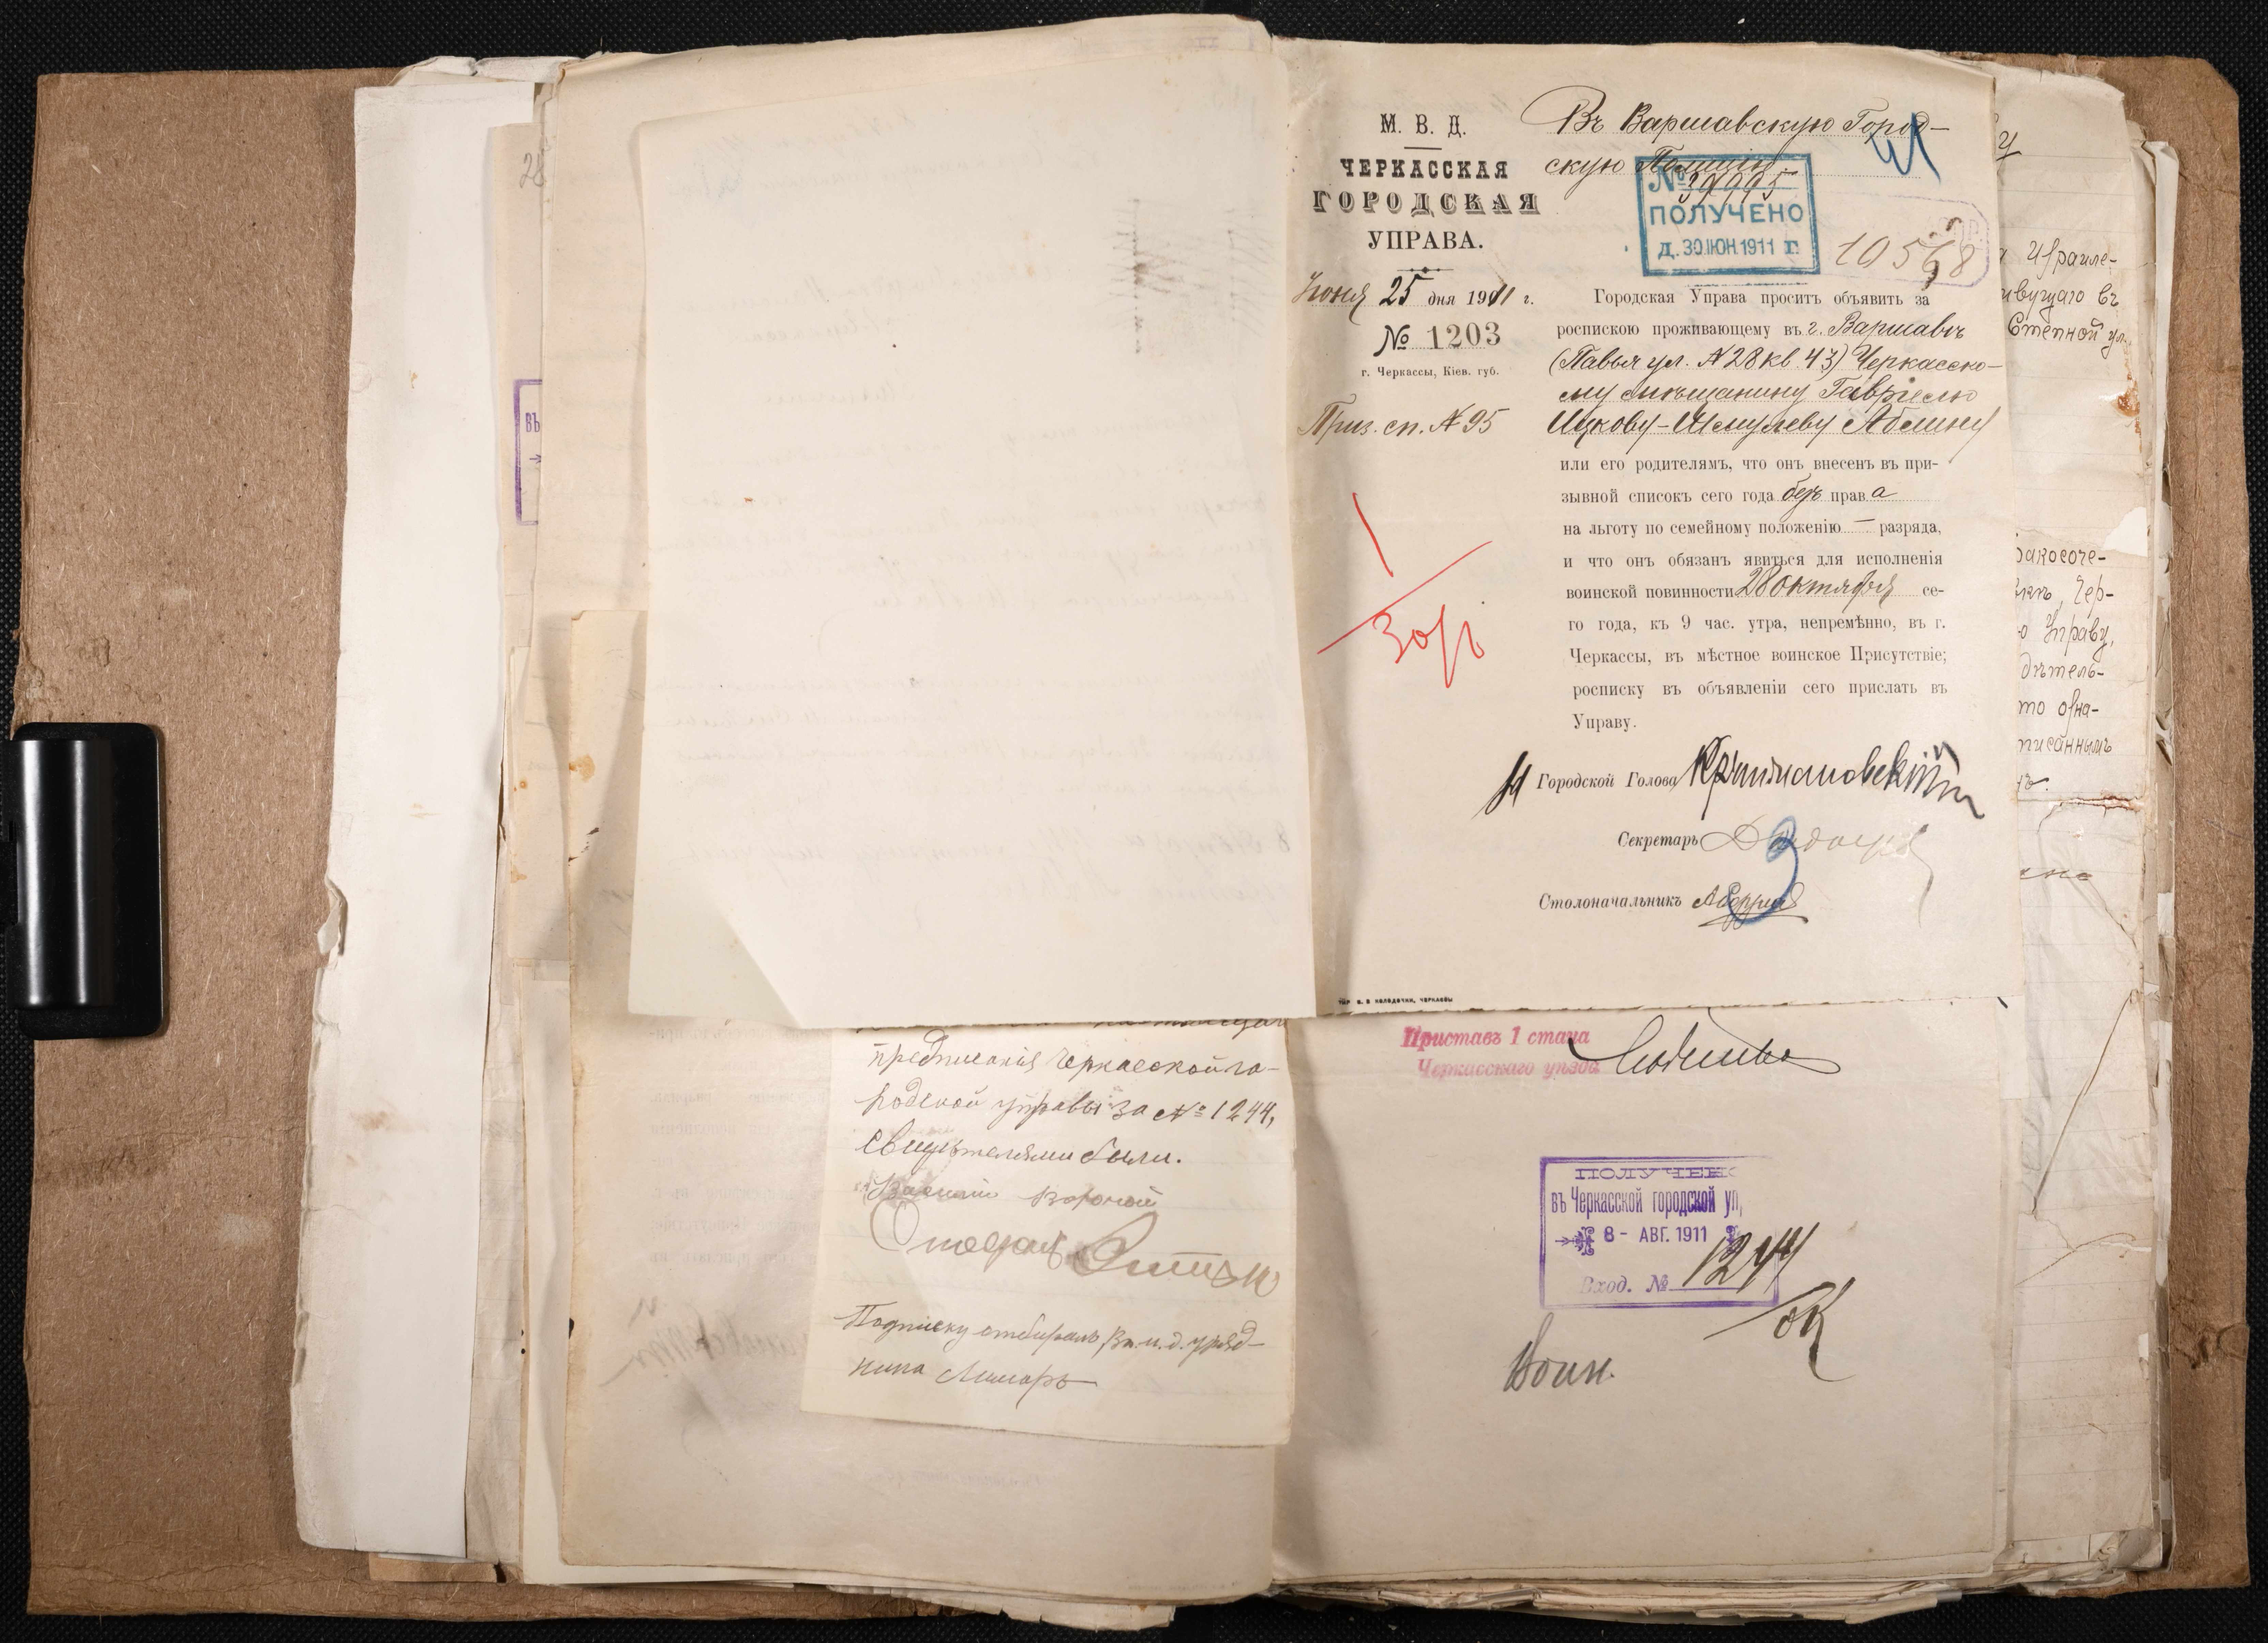 М. В. Д.
ЧЕРКАССКАЯ
ГОРОДСКАЯ
УПРАВА.
Іюня 25 дня 1911 г.
№ 1203
г. Черкассы, Кіев. губ.
Приз. сп. № 95
Въ Варшавскую Город-
скую Полицію.
№ 39995
ПОЛУЧЕНО
Д. 30 ІЮН 1911 Г.
10568
Городская Управа проситъ объявить за
роспискою проживающему въ г. Варшавѣ
(Павья ул. № 28 кв. 43) Черкасско-
му мѣщанину Гавріелю
Ицкову-Шмулеву Аблину
или его родителямъ, что онъ внесенъ въ при-
зывной списокъ сего года безъ права
на льготу по семейному положенію — разряда,
и что онъ обязанъ явиться для исполненія
воинской повинности 28 октября се-
го года, къ 9 час. утра, непремѣнно, въ г.
Черкассы, въ мѣстное воинское Присутствіе;
росписку въ объявленіи сего прислать въ
Управу.
Городской Голова
Секретарь
Столоначальникъ
28
ВЪ
предписанія Черкасской го-
родской управы за № 1244,
свидѣтелями были.
Подписку отбиралъ Вр. и. д. уряд-
ника Лимарь
Приставъ 1 стана
Черкасскаго уѣзда
ПОЛУЧЕН
въ Черкасской городской уп,
8 - АВГ. 1911
Вход. № 1244
Воин.
Израиле-
ивущаго въ
Степной ул.
ракосоче-
Чер-
ю Управу,
дѣтель-
то озна-
писаннымъ